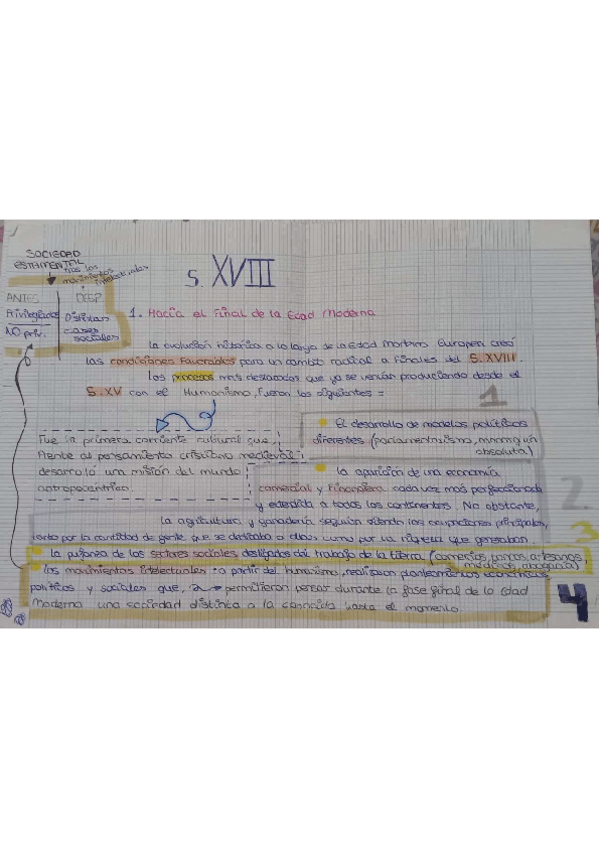 SOCIEDAD
ESTAMENTAL
tras los
movimientos
intelectuales
ANTES
DESP.
Privilegiados
NO priv.
Distintas
clases
sociales
S. XVIII
1. Hacia el Final de la Edad Moderna
La evolución histórica a lo largo de la Edad Moderna Europea creó
las condiciones favorables para un cambio radical a finales del S. XVIII.
Los procesos más destacados que ya se venían produciendo desde el
S. XV con el Humanismo, fueron los siguientes =
1
Fue la primera corriente cultural que,
frente al pensamiento cristiano medieval,
desarrolló una misión del mundo
antropocéntrico.
El desarrollo de modelos políticos
diferentes (parlamentarismo, monarquía
absoluta)
2.
la aparición de una economía
comercial y Financiera cada vez más perfeccionada
y extendida a todos los continentes. No obstante,
la agricultura y ganadería seguían siendo las ocupaciones principales,
tanto por la cantidad de gente que se dedicaba a ellas como por la riqueza que generaban.
3
La pujanza de los sectores sociales desligados del trabajo de la tierra (comerciantes, artesanos
médicos, abogacía)
los movimientos intelectuales: a partir del humanismo, realizaron planteamientos económicos,
políticos y sociales que, permitieron pensar durante la fase final de la Edad
Moderna una sociedad distinta a la conocida hasta el momento.
4